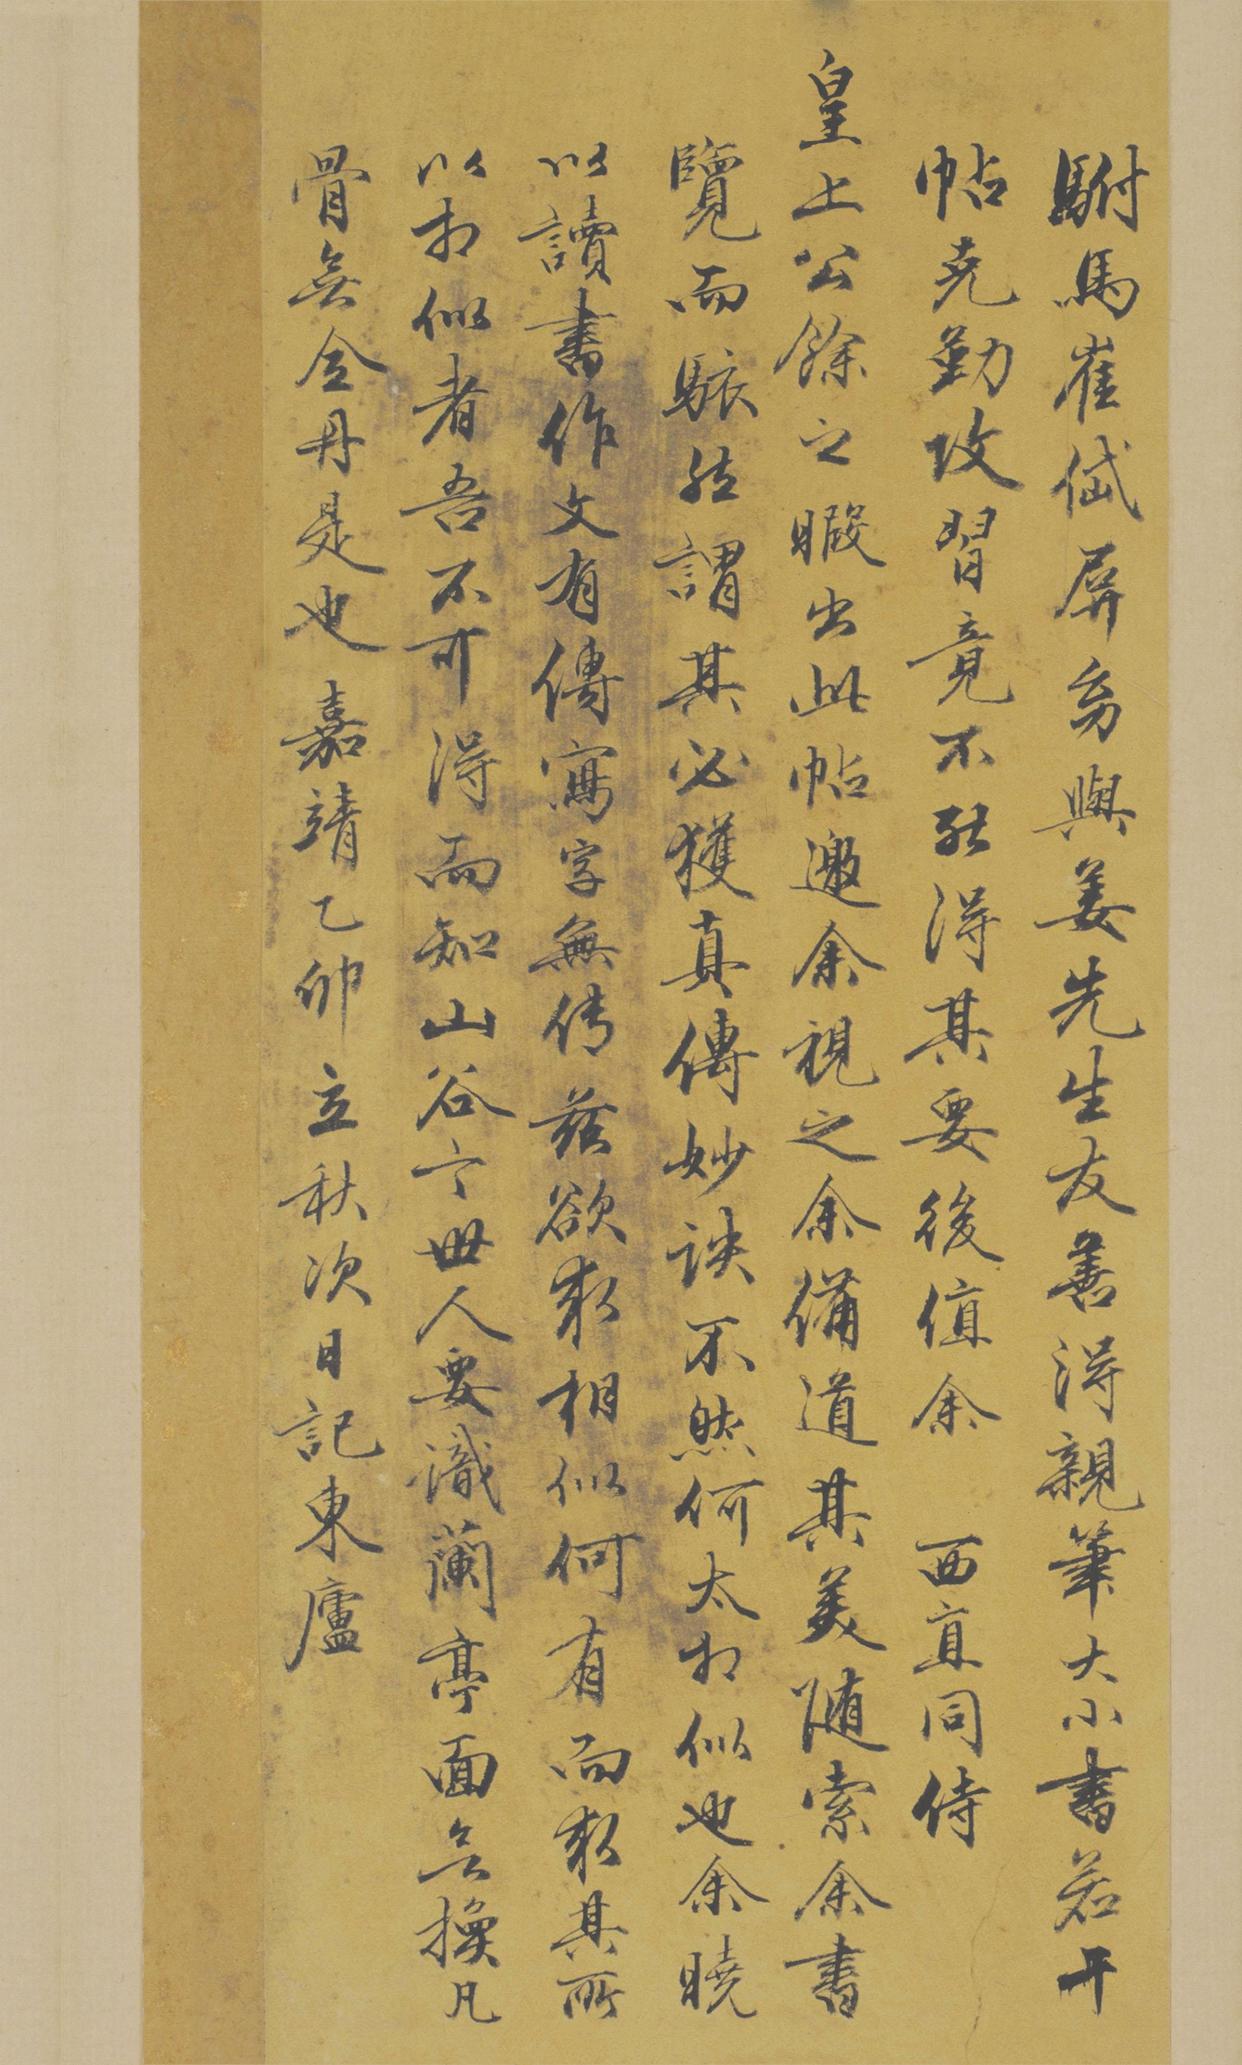 駙馬崔岱屏翁與姜先生友善得親筆大小書若干
帖克勤攻習竟不能得其要後值余 西直同侍
皇上公餘之暇出此帖邀余視之余備道其美随索余書
覽而駭然謂其必獲真傳妙訣不然何太相似也余曉
以讀書作文有傳寫字無传茲欲求相似何有而求其所
以相似者吾不可得而知山谷云世人要識蘭亭面無換凡
骨無金丹是也 嘉靖乙卯立秋次日記東廬